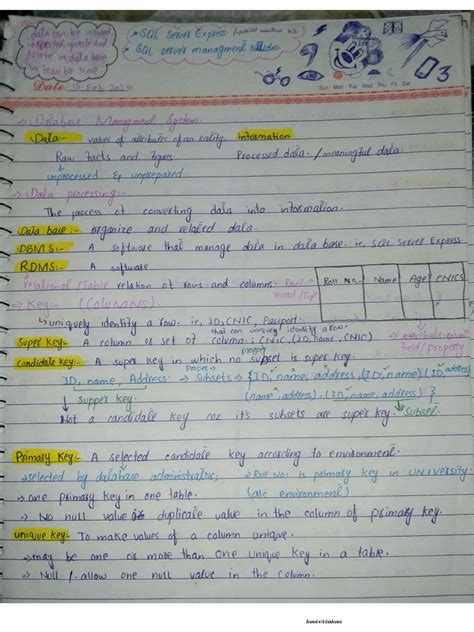 data can be viewed
inserted, update and
delete in data base
in feasible time
* SQL Server Express.
* SQL server managment studio.
Sun Mon Tue Wed Thu Fri Sat
03
Date: Feb 2024
→ Database Managment System.
Data:- values of attributes of an entity. Information
Raw facts and figures Processed data. / meaningful data.
unprocessed & unprepared.
→ Data processing:-
The process of converting data into information.
Data base:- organize and related data.
DBMS:- A software that manage data in data base. ie, SQL Server Express
RDMS:- A software
relational / Table relation of rows and columns.
Roll No. Name Age CNICs
→ Key:- (COLUMNS).
↳ uniquely identify a row. ie, ID, CNIC, Passport.
that can uniquely identify a row.
Super Key:- A column or set of column : CNIC, (ID, CNIC)
field/property
proper
Candidate key:- A super key in which no subset is super key.
ID, name, Address → Subsets → {(ID, name, address), (ID, name), (
(name, address), (ID, name, address). }
Supper key
Subset
Not a candidate key coz it's subsets are super key.
Primary Key:- A selected candidate key according to environment.
→ selected by database administrator, → Roll No: is primary key in UNIversity.
→ one primary key in one table. (a/c environment)
→ No null value or duplicate value in the column of primary key.
unique key:- To make values of a column unique.
→ may be one or more than one unique key in a table.
→ Null / allow one null value in the column.
Scanned with CamScanner